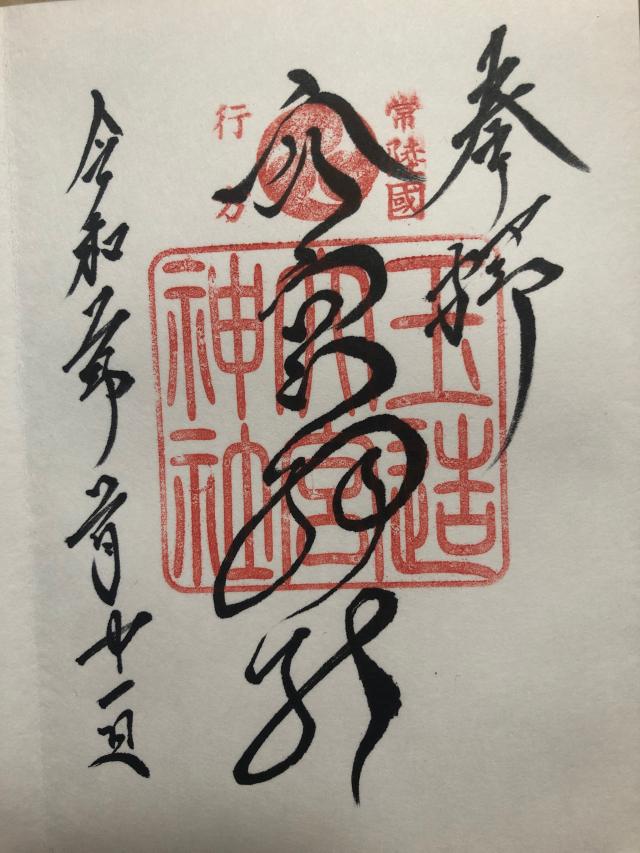 奉拝
常陸國
行方
大宮神社
玉造
大宮
神社
令和 年 月廿一日